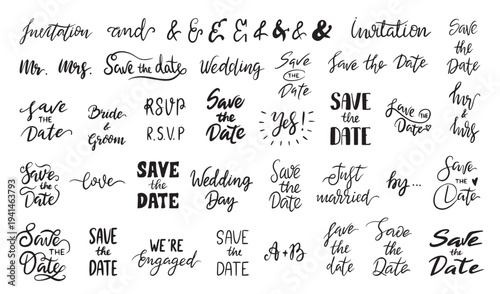 Invitation
and
& & & & & & & &
Invitation
Save
the
Date
Mr.
Mrs.
Save the date
Wedding
Save
THE
Date
Save the Date
Save
the
Date
Bride
&
Groom
RSVP
R.S.V.P
Save
the
Date
Yes!
SAVE
the
DATE
Save
THE
Date
Mr
&
Mrs
Save
the
Date
Love
SAVE
the
DATE
Wedding
Day
Save
the
Date
Just
married
by...
Save
the
Date
Save
the
Date
SAVE
the
DATE
WE'RE
Engaged
SAVE
the
DATE
A+B
Save
the
date
Save
the
Date
Save
the
Date
Adobe Stock | #1941463793